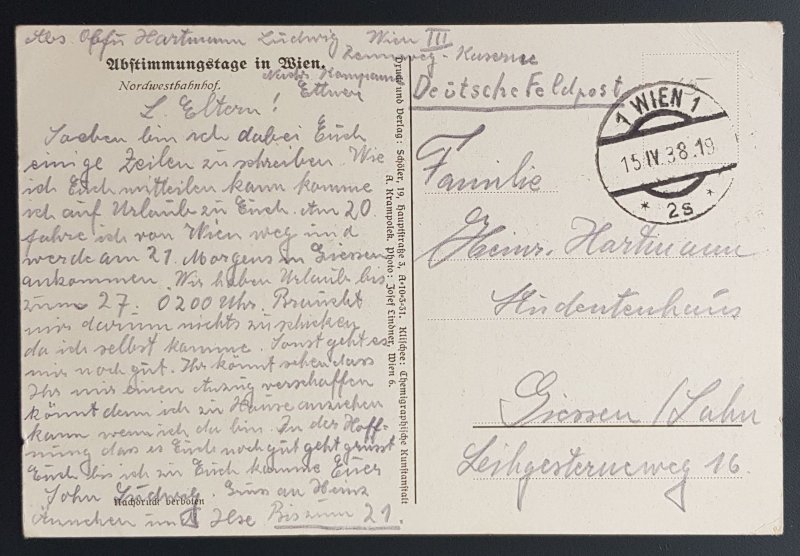 Abs. Hartmann Ludwig Wien III
Rennweg-Kaserne
Nachr. Kompanie
Abstimmungstage in Wien.
Nordwestbahnhof.
L. Eltern!
Soeben bin ich dabei Euch
einige Zeilen zu schreiben. Wie
ich Euch mitteilen kann komme
ich auf Urlaub zu Euch. Am 20.
fahre ich von Wien weg und
werde am 21. Morgens in Giessen
ankommen. Wir haben Urlaub bis
zum 27. 0200 Uhr. Braucht
mir darum nichts zu schicken
da ich selbst komme. Sonst geht es
mir noch gut. Ihr könnt sehen dass
Ihr mir einen Anzug verschaffen
könnt denn ich zu Hause anziehen
kann wenn ich da bin. In der Hoff-
nung dass es Euch noch gut geht grüsst
Euch bis ich zu Euch komme Euer
Sohn Ludwig. Gruss an Heinz
Nachdruck verboten
Ännchen und Ilse Bis zum 21.
Druck und Verlag: Schöler, 19, Hauptstraße 3, A-10-3-31. Klischee: Chemigraphische Kunstanstalt
A. Krampolek. Photo: Josef Lindner, Wien 6.
Deutsche Feldpost
1 WIEN 1
15.IV.38.19
* 2s *
Familie
Heinr. Hartmann
Studentenhaus
Giessen/Lahn
Leihgesternerweg 16.